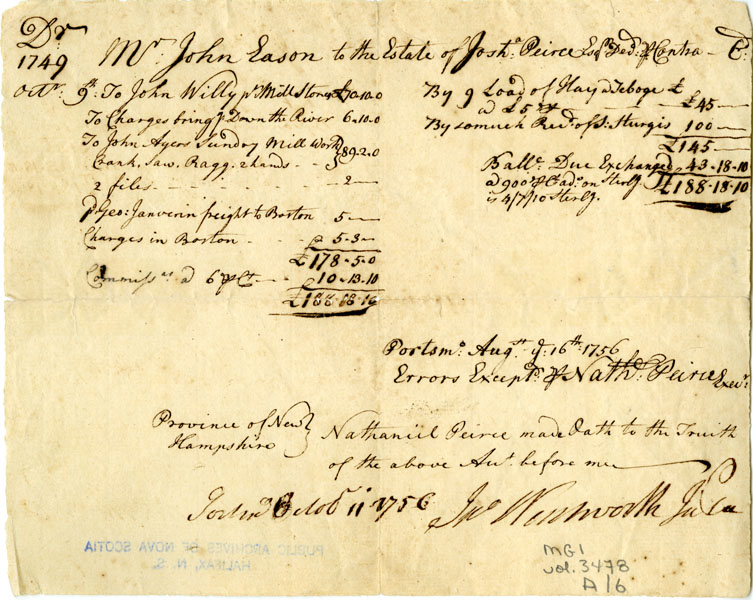 Dr
Mr. John Eason to the Estate of Josha. Peirce Esqr. Decd. Contra Cr.
1749
Octr. 9th. To John Willy pr. Mill Stones £70-10-0
To Charges bring Down the River 6-10-0
To John Ayers Sunday Mill Work
Crank, Saw, Ragg, 2 hands } 89-2-0
2 files 2
pr Geo: Janverin freight to Boston 5
Charges in Boston 5-3
£178-5-0
Commissns. a 6 pr Ct. 10-13-10
£188-18-10
By 9 Load of Hay a £5 £45
By somuch Recd. of S. Sturgis 100
£145
Ballce. Due Exchanged 43-18-10
a 900 pr Ct ad. on Sterlg. £188-18-10
is 4/7/10 Sterlg.
Portsmo. Augst. ye. 16th. 1756
Errors Exceptd. pr Nathl. Peirce Execr.
Province of New
Hampshire } Nathaniel Peirce made Oath to the Truith
of the above Acct. before me
Octobr 11 1756 Jno Wentworth Ju Pa
PUBLIC ARCHIVES OF NOVA SCOTIA
HALIFAX, N. S.
MG1
vol. 3478
A/6